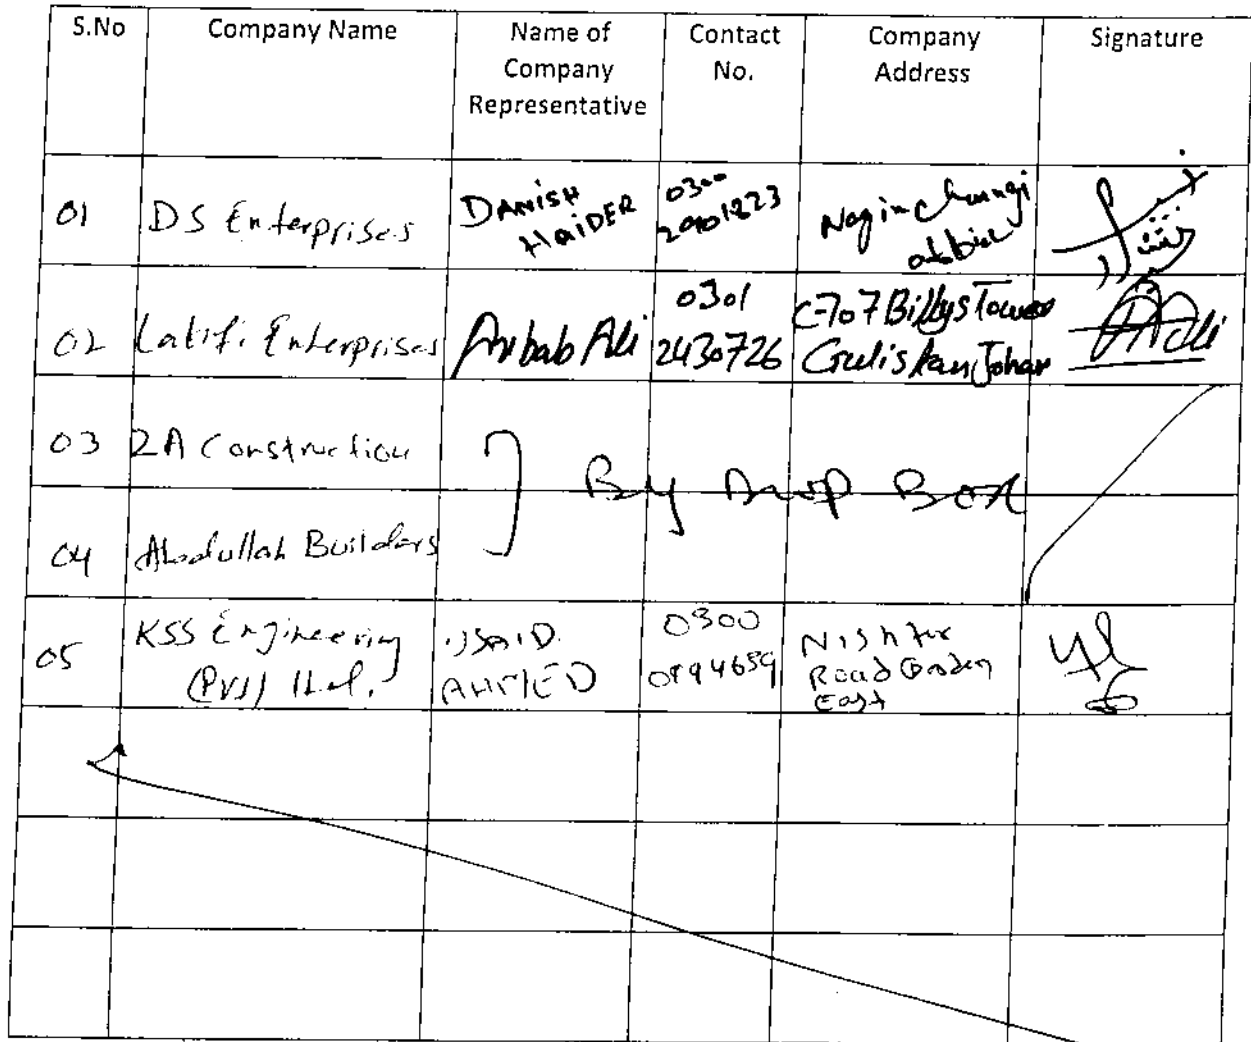 S.No Company Name Name of Company Representative Contact No. Company Address Signature
01 DS Enterprises DANiSH HAiDER 0300
02 Latifi Enterprises Arbab Ali 0301 2430726 C-707 Billys Tower Gulistan Johar
03 2A Construction
By Drop Box
04 Abdullah Builders
05 KSS Engineering (Pvt) Ltd. AHMED 0300 Nishter Road Garden East